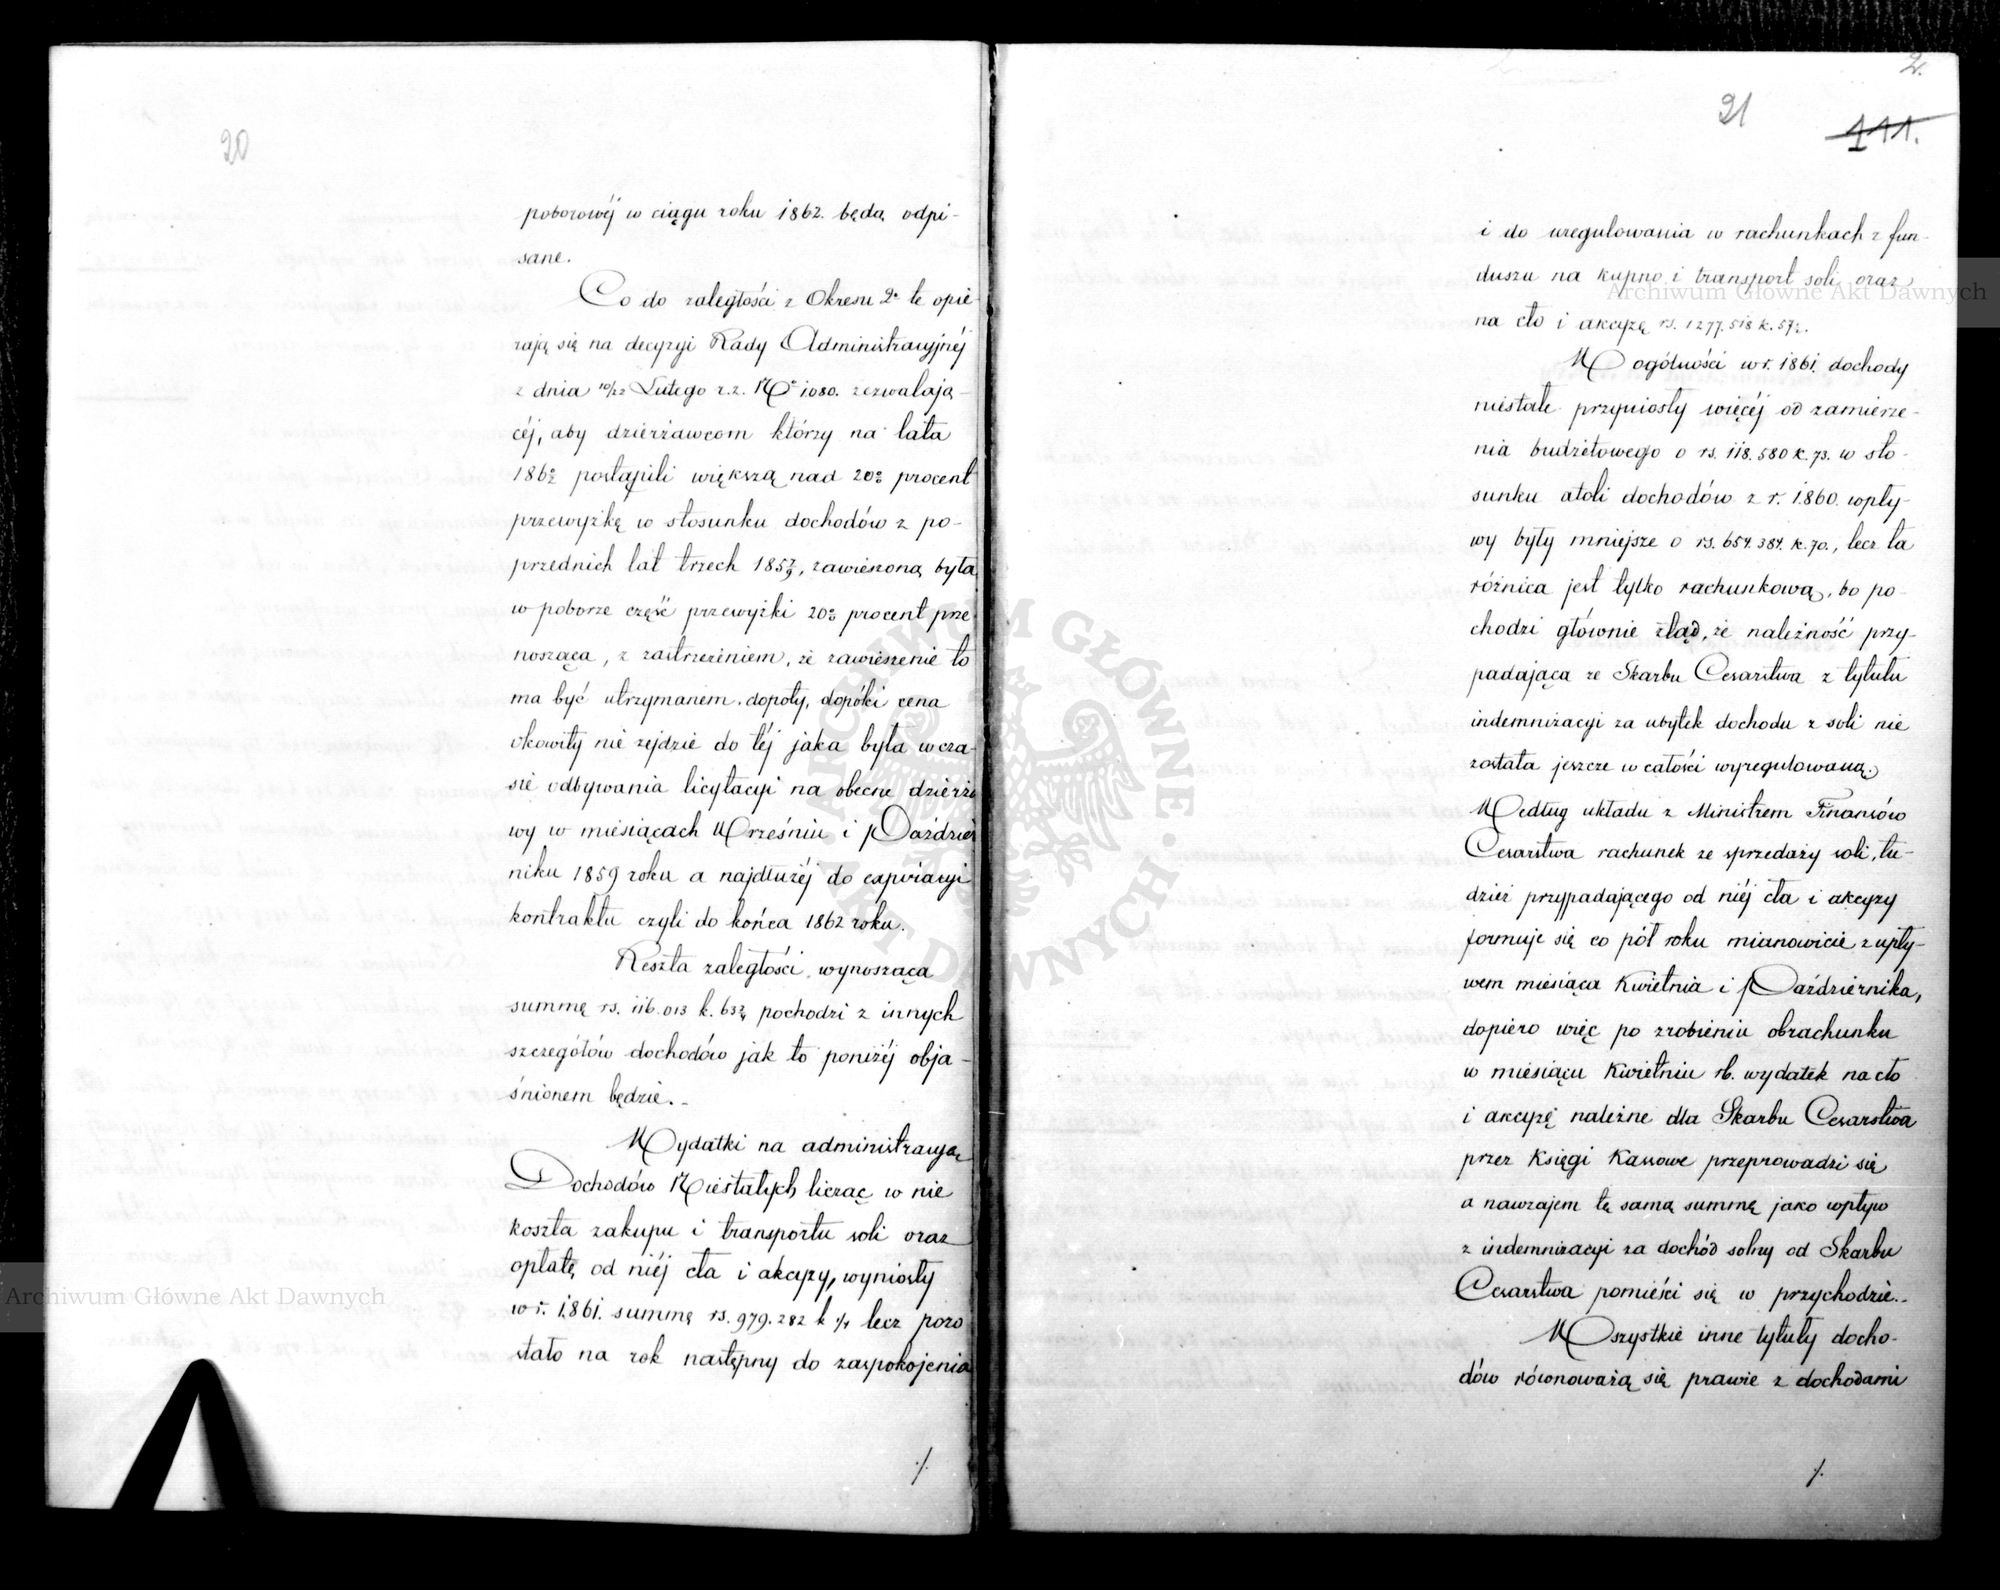 20
poborowéj w ciągu roku 1862. będą odpi-
sane.
Co do zaległości z Okresu 2º te opie-
rają się na decyzyi Rady Administracyjnéj
z dnia 10/22 Lutego r.z. Nº 1080. zezwalają-
céj, aby dzierżawcom którzy na lata
186 postąpili większą nad 20% procent
przewyżkę w stosunku dochodów z po-
przednich lat trzech 1857/9, zawieszoną była
w poborze część przewyżki 20% procent prze
nosząca, z zastrzeżeniem, że zawieszenie to
ma być utrzymanem dopóty, dopóki cena
okowity nie zejdzie do téj jaka była w cza-
sie odbywania licytacyi na obecne dzierża
wy w miesiącach Wrześniu i Paździer
niku 1859 roku a najdłużéj do expiracyi
kontraktu czyli do końca 1862 roku.
Reszta zaległości wynosząca
summę rs. 116.013 k. 63½ pochodzi z innych
szczegółów dochodów jak to poniżéj obja-
śnionem będzie.-
Wydatki na administracyą
Dochodów Niestałych licząc w nie
koszta zakupu i transportu soli oraz
opłatę od niéj cła i akcyzy, wyniosły
w r. 1861. summę rs. 979.282 k ¼ lecz pozo
stało na rok następny do zaspokojenia
./.
2.
21
111.
i do uregulowania w rachunkach z fun-
duszu na kupno i transport soli oraz
na cło i akcyzę rs. 1277.518 k. 57½.
W ogólności w r. 1861. dochody
niestałe przyniosły więcéj od zamierze-
nia budżetowego o rs. 118.580 k. 73. w sto-
sunku atoli dochodów z r. 1860. wpły-
wy były mniejsze o rs. 654.384. k. 70., lecz ta
różnica jest tylko rachunkową, bo po-
chodzi głównie ztąd, że należność przy-
padająca ze Skarbu Cesarstwa z tytułu
indemnizacyi za ubytek dochodu z soli nie
została jeszcze w całości wyregulowaną.
Według układu z Ministrem Finansów
Cesarstwa rachunek ze sprzedaży soli, tu-
dzież przypadającego od niéj cła i akcyzy
formuje się co pół roku mianowicie z upły-
wem miesiąca Kwietnia i Października,
dopiero więc po zrobieniu obrachunku
w miesiącu Kwietniu rb. wydatek na cło
i akcyzę należne dla Skarbu Cesarstwa
przez Księgi Kassowe przeprowadzi się
a nawzajem tę samą summę jako wpływ
z indemnizacyi za dochód solny od Skarbu
Cesarstwa pomieści się w przychodzie..
Wszystkie inne tytuły docho-
dów równoważą się prawie z dochodami
./.
Archiwum Główne Akt Dawnych
Archiwum Główne Akt Dawnych
ARCHIWUM GŁÓWNE AKT DAWNYCH